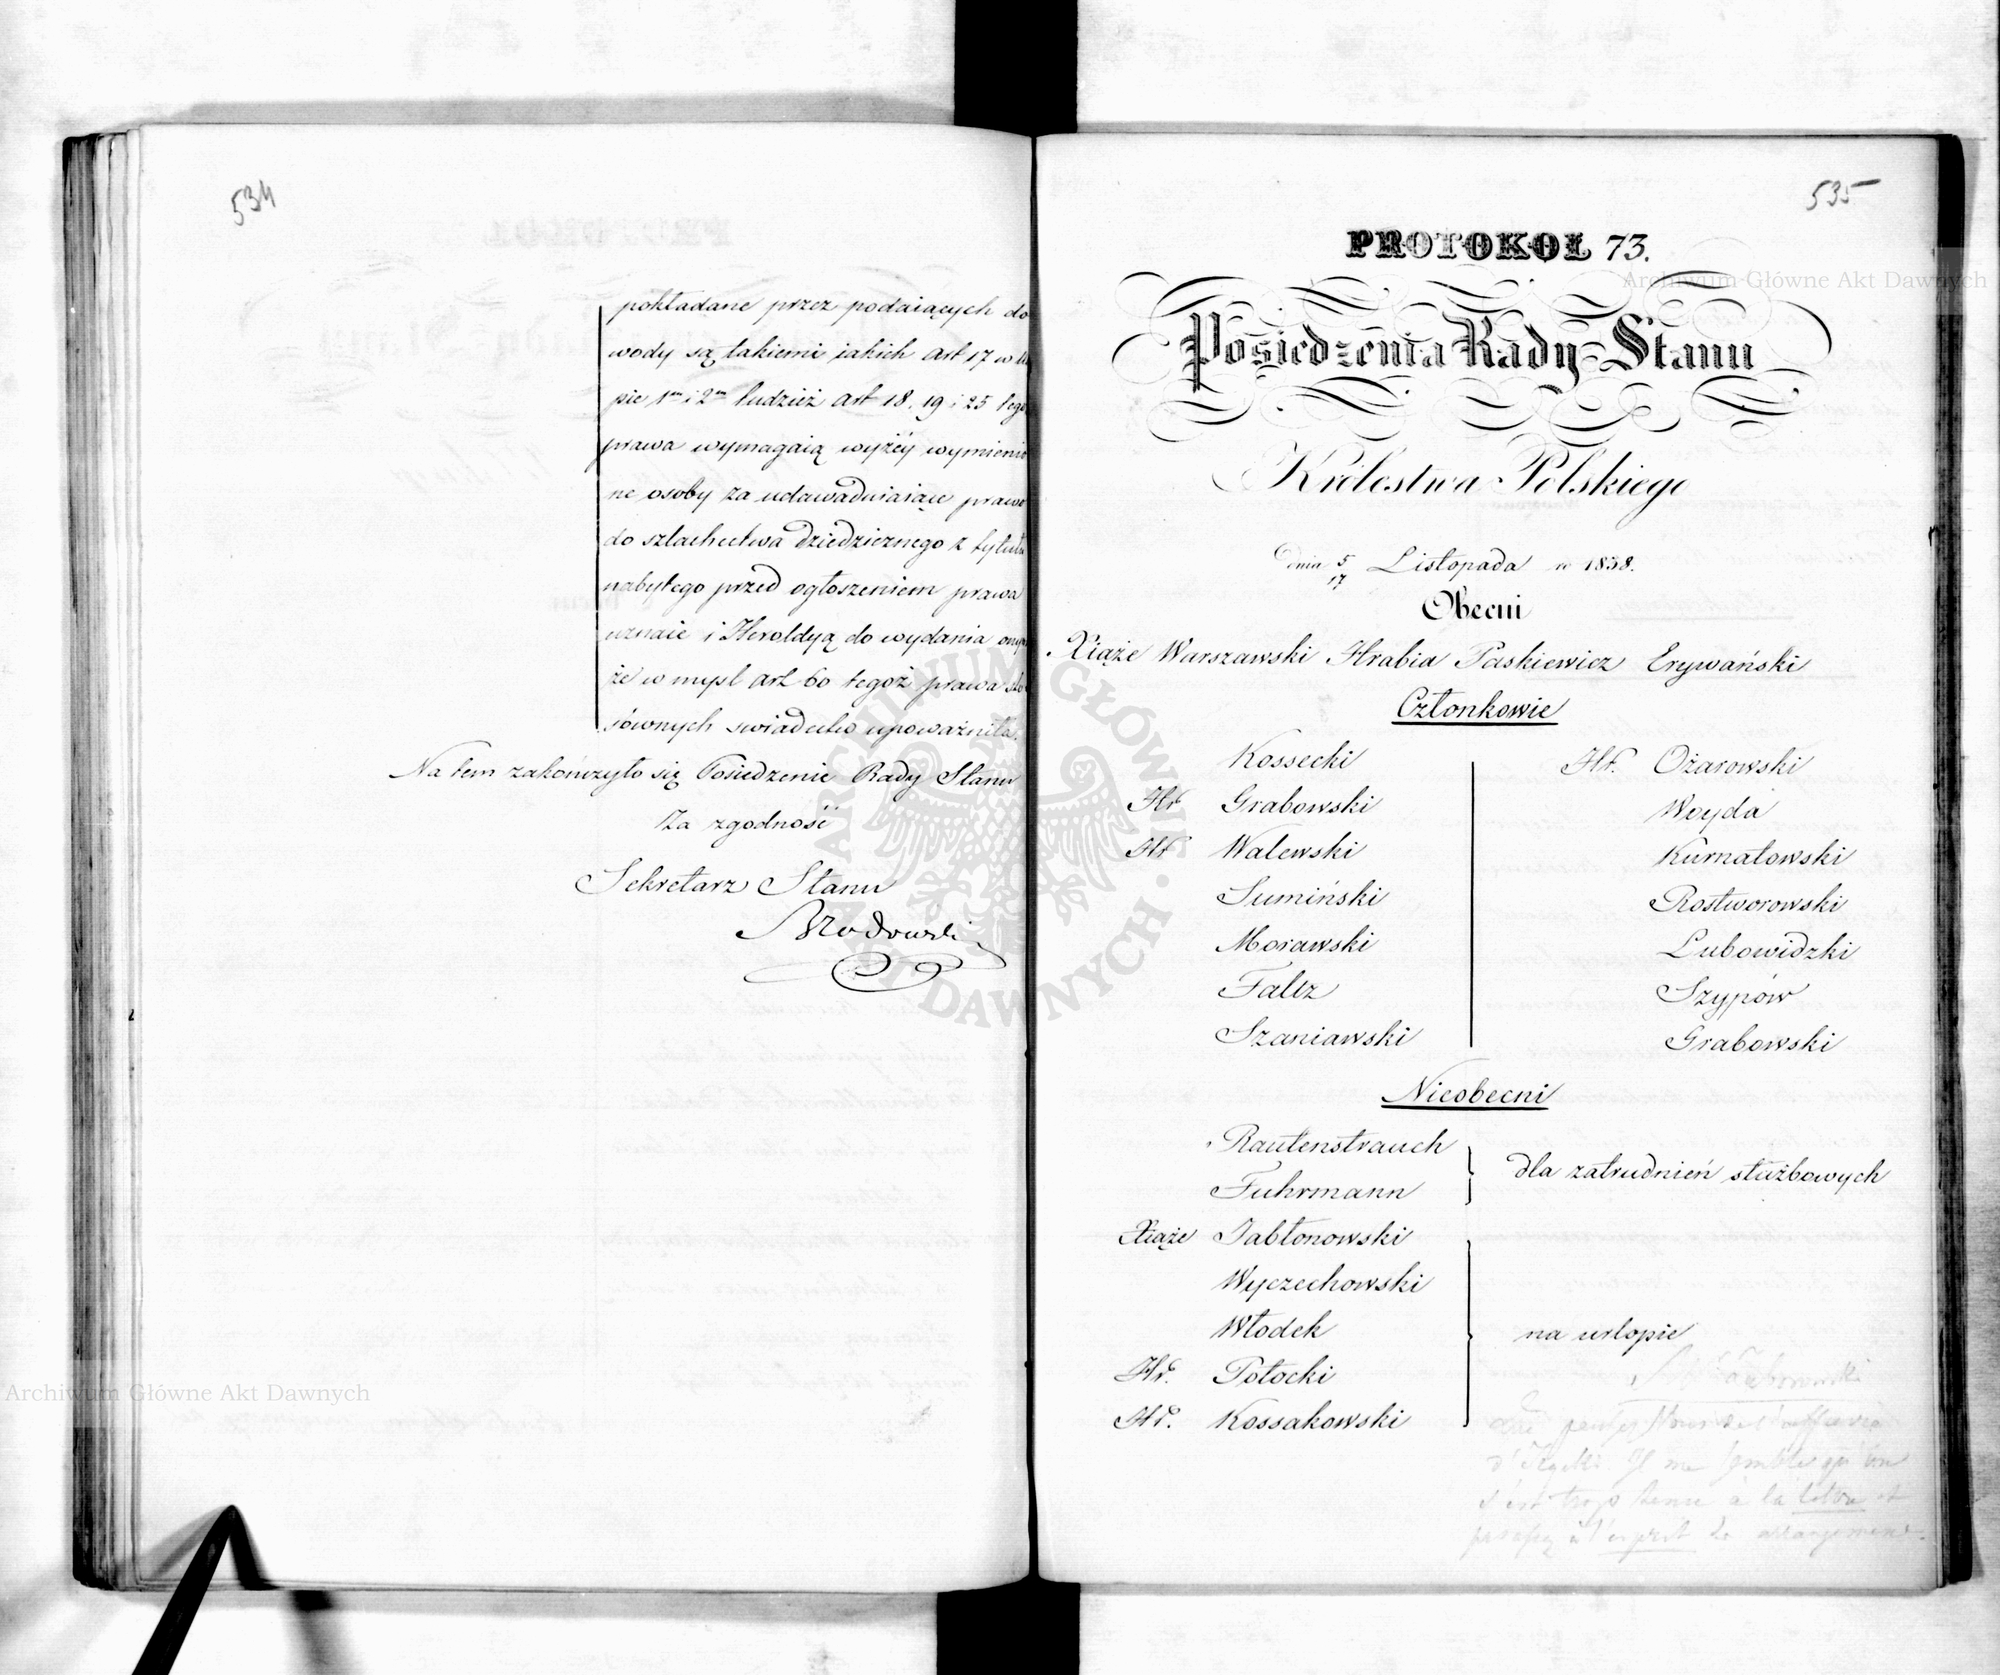 534
pokładane przez podaiących do
wody są takiemi jakich Art 17 w u
pie 1m i 2m tudzież Art 18. 19 i 25 tego
prawa wymagaią wyżéy wymienio
ne osoby za udawadniaiące prawo
do szlachectwa dziedzicznego z tytułu
nabytego przed ogłoszeniem prawa
uznaie i Heroldyą do wydania onym
że w mysl Art 60 tegoż prawa sto
sównych swiadectw upoważniła.
Na tem zakończyło się Posiedzenie Rady Stanu
Za zgodność
Sekretarz Stanu
Brodowski
535
PROTOKÓŁ 73.
Posiedzenia Rady Stanu
Królestwa Polskiego
Dnia 5/17 Listopada r. 1838.
Obecni
Xiąże Warszawski Hrabia Paskiewicz Erywański
Członkowie
Kossecki
Hr Grabowski
Hr Walewski
Sumiński
Morawski
Faltz
Szaniawski
Hr. Ożarowski
Woyda
Kurnatowski
Rostworowski
Lubowidzki
Szypów
Grabowski
Nieobecni
Rautenstrauch
Fuhrmann
dla zatrudnień służbowych
Xiąże Jabłonowski
Wyczechowski
Włodek
Hr. Potocki
Hr. Kossakowski
na urlopie
pensez Vous de l'affaire
Il me semble qu'on
s'est trop tenu à la lettre et
pas assez à l'esprit de
ARCHIWUM GŁÓWNE AKT DAWNYCH
Archiwum Główne Akt Dawnych
Archiwum Główne Akt Dawnych